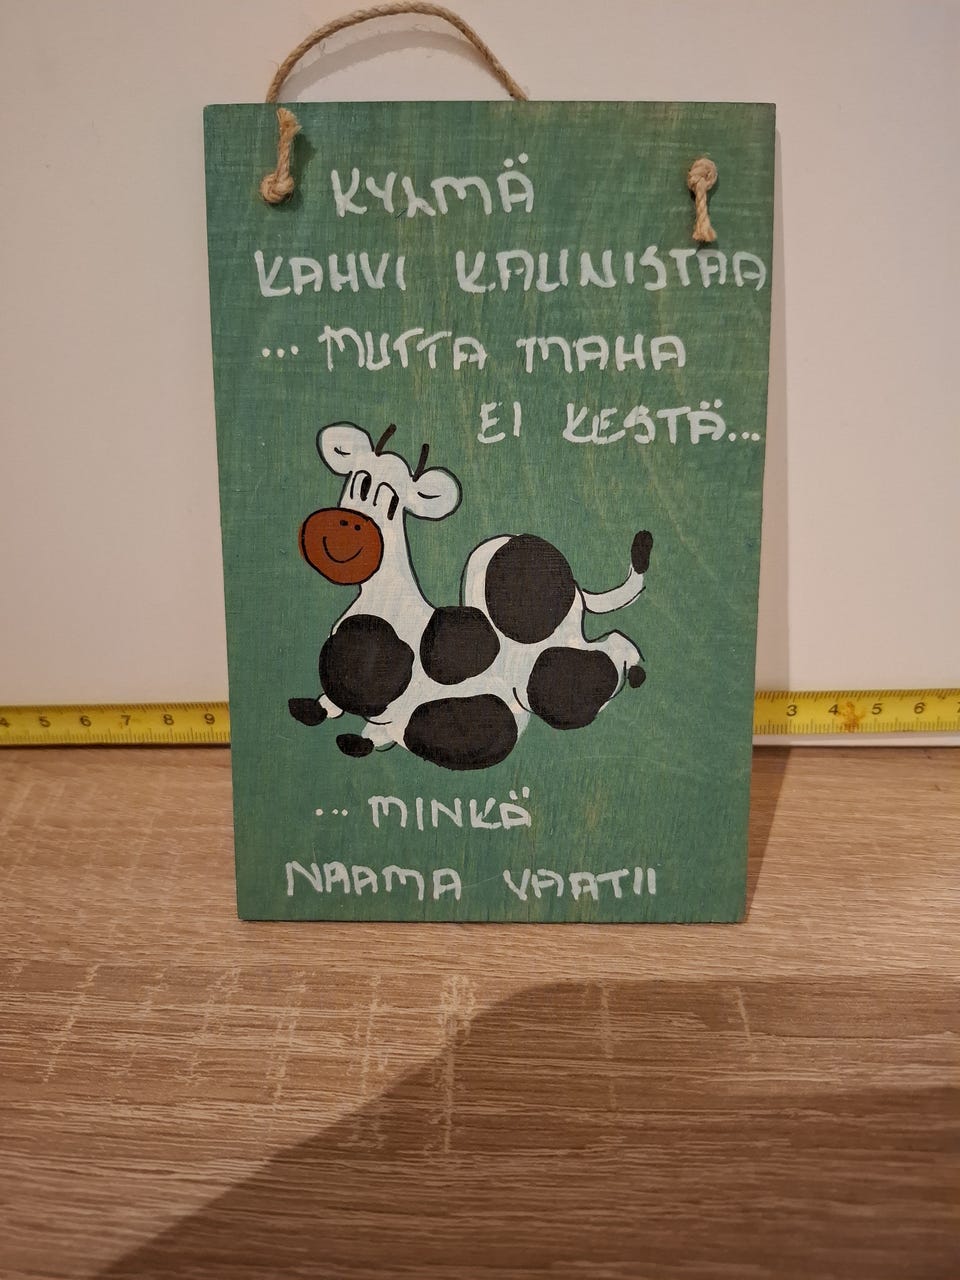 KYLMÄ
KAHVI KAUNISTAA
... MUTTA MAHA
EI KESTÄ...
... MINKÄ
NAAMA VAATII
4 5 6 7 8 9
3 4 5 6 7